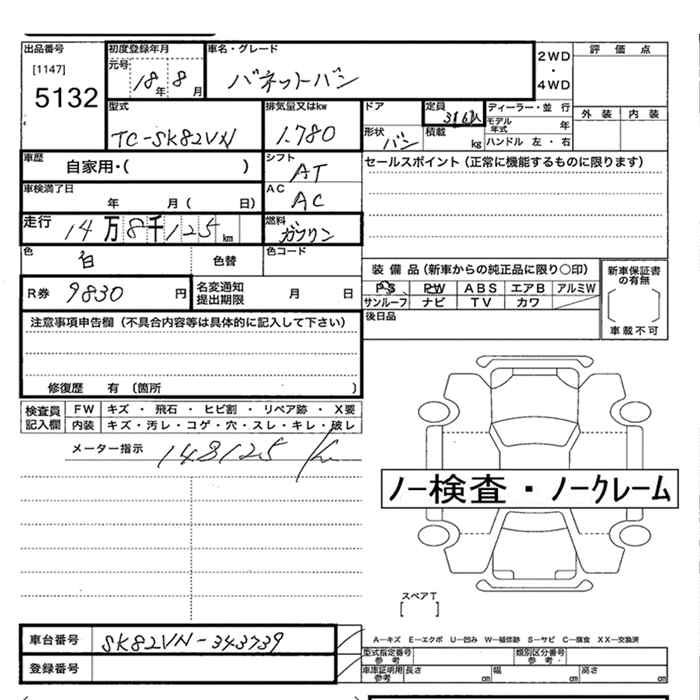 出品番号 初度登録年月 車名・グレード 2WD・4WD 評価点
[1147] 元号 18年 8月 バネットバン 外装 内装
5132
型式 排気量又はkw ドア 定員 ディーラー・並行
TC-SK82VN 1.780 3/6人 モデル年式 年
形状 バン 積載 kg ハンドル 左・右
車歴 自家用・( ) シフト AT セールスポイント(正常に機能するものに限ります)
車検満了日 年 月( 日) AC AC
走行 14万8千125km 燃料 ガソリン
色 白 色替 色コード
装備品(新車からの純正品に限り○印) 新車保証書の有無
R券 9830円 名変通知提出期限 月 日 PS PW ABS エアB アルミW
サンルーフ ナビ TV カワ
車載不可
注意事項申告欄(不具合内容等は具体的に記入して下さい) 後日品
修復歴 有(箇所 )
検査員記入欄 FW キズ・飛石・ヒビ割・リペア跡・X要
内装 キズ・汚レ・コゲ・穴・スレ・キレ・破レ
メーター指示 148125 km
ノー検査・ノークレーム
スペアT
[ ]
車台番号 SK82VN-343739 A―キズ E―エクボ U―凹み W―補修跡 S―サビ C―腐食 XX―交換済
登録番号 型式指定番号 参考 類別区分番号 参考
車庫証明用参考 長さ cm 幅 cm 高さ cm